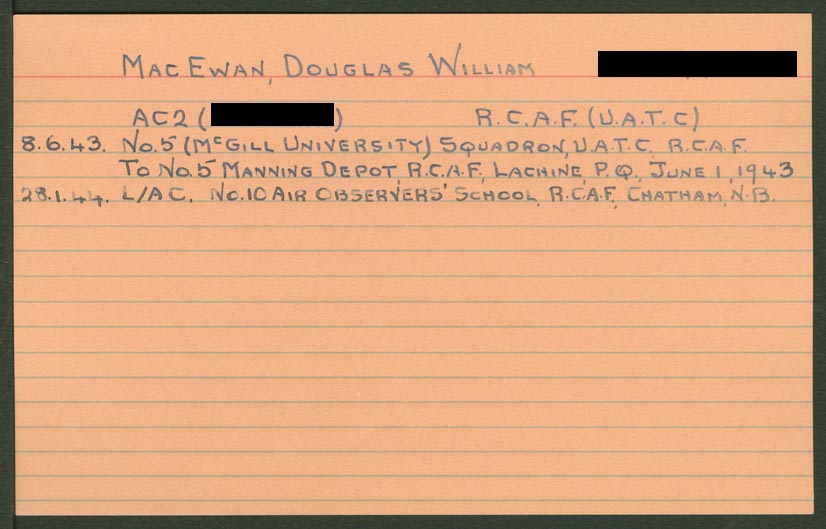 MacEwan, Douglas William
AC2 ( ) R.C.A.F. (U.A.T.C)
8.6.43. No.5 (McGill University) Squadron, U.A.T.C. R.C.A.F.
To No.5 Manning Depot, R.C.A.F., Lachine, P.Q., June 1, 1943
28.1.44. L/AC. No.10 Air Observers' School, R.C.A.F., Chatham, N.B.